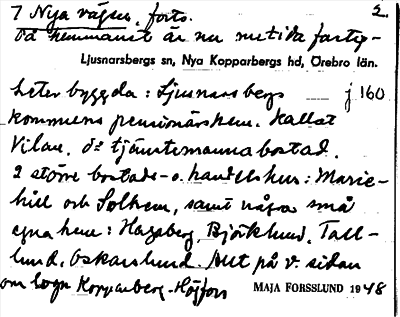 7 Nya vägsn, forts. 2.
På hemmanet är nu metida fastig-
Ljusnarsbergs sn, Nya Kopparbergs hd, Örebro län.
heter byggda: Ljusnarsbergs j 160
kommuns pensionärshem, kallat
Vilan, o. tjänstemannabostad.
2 större bostads- o. handelshus: Marie-
hill och Solhem, samt några små
egna hem: Hagaberg, Björklund, Tall-
lund, Oskarslund. Allt på v. sidan
om lvgn Kopparberg-Högfors
MAJA FORSSLUND 1948